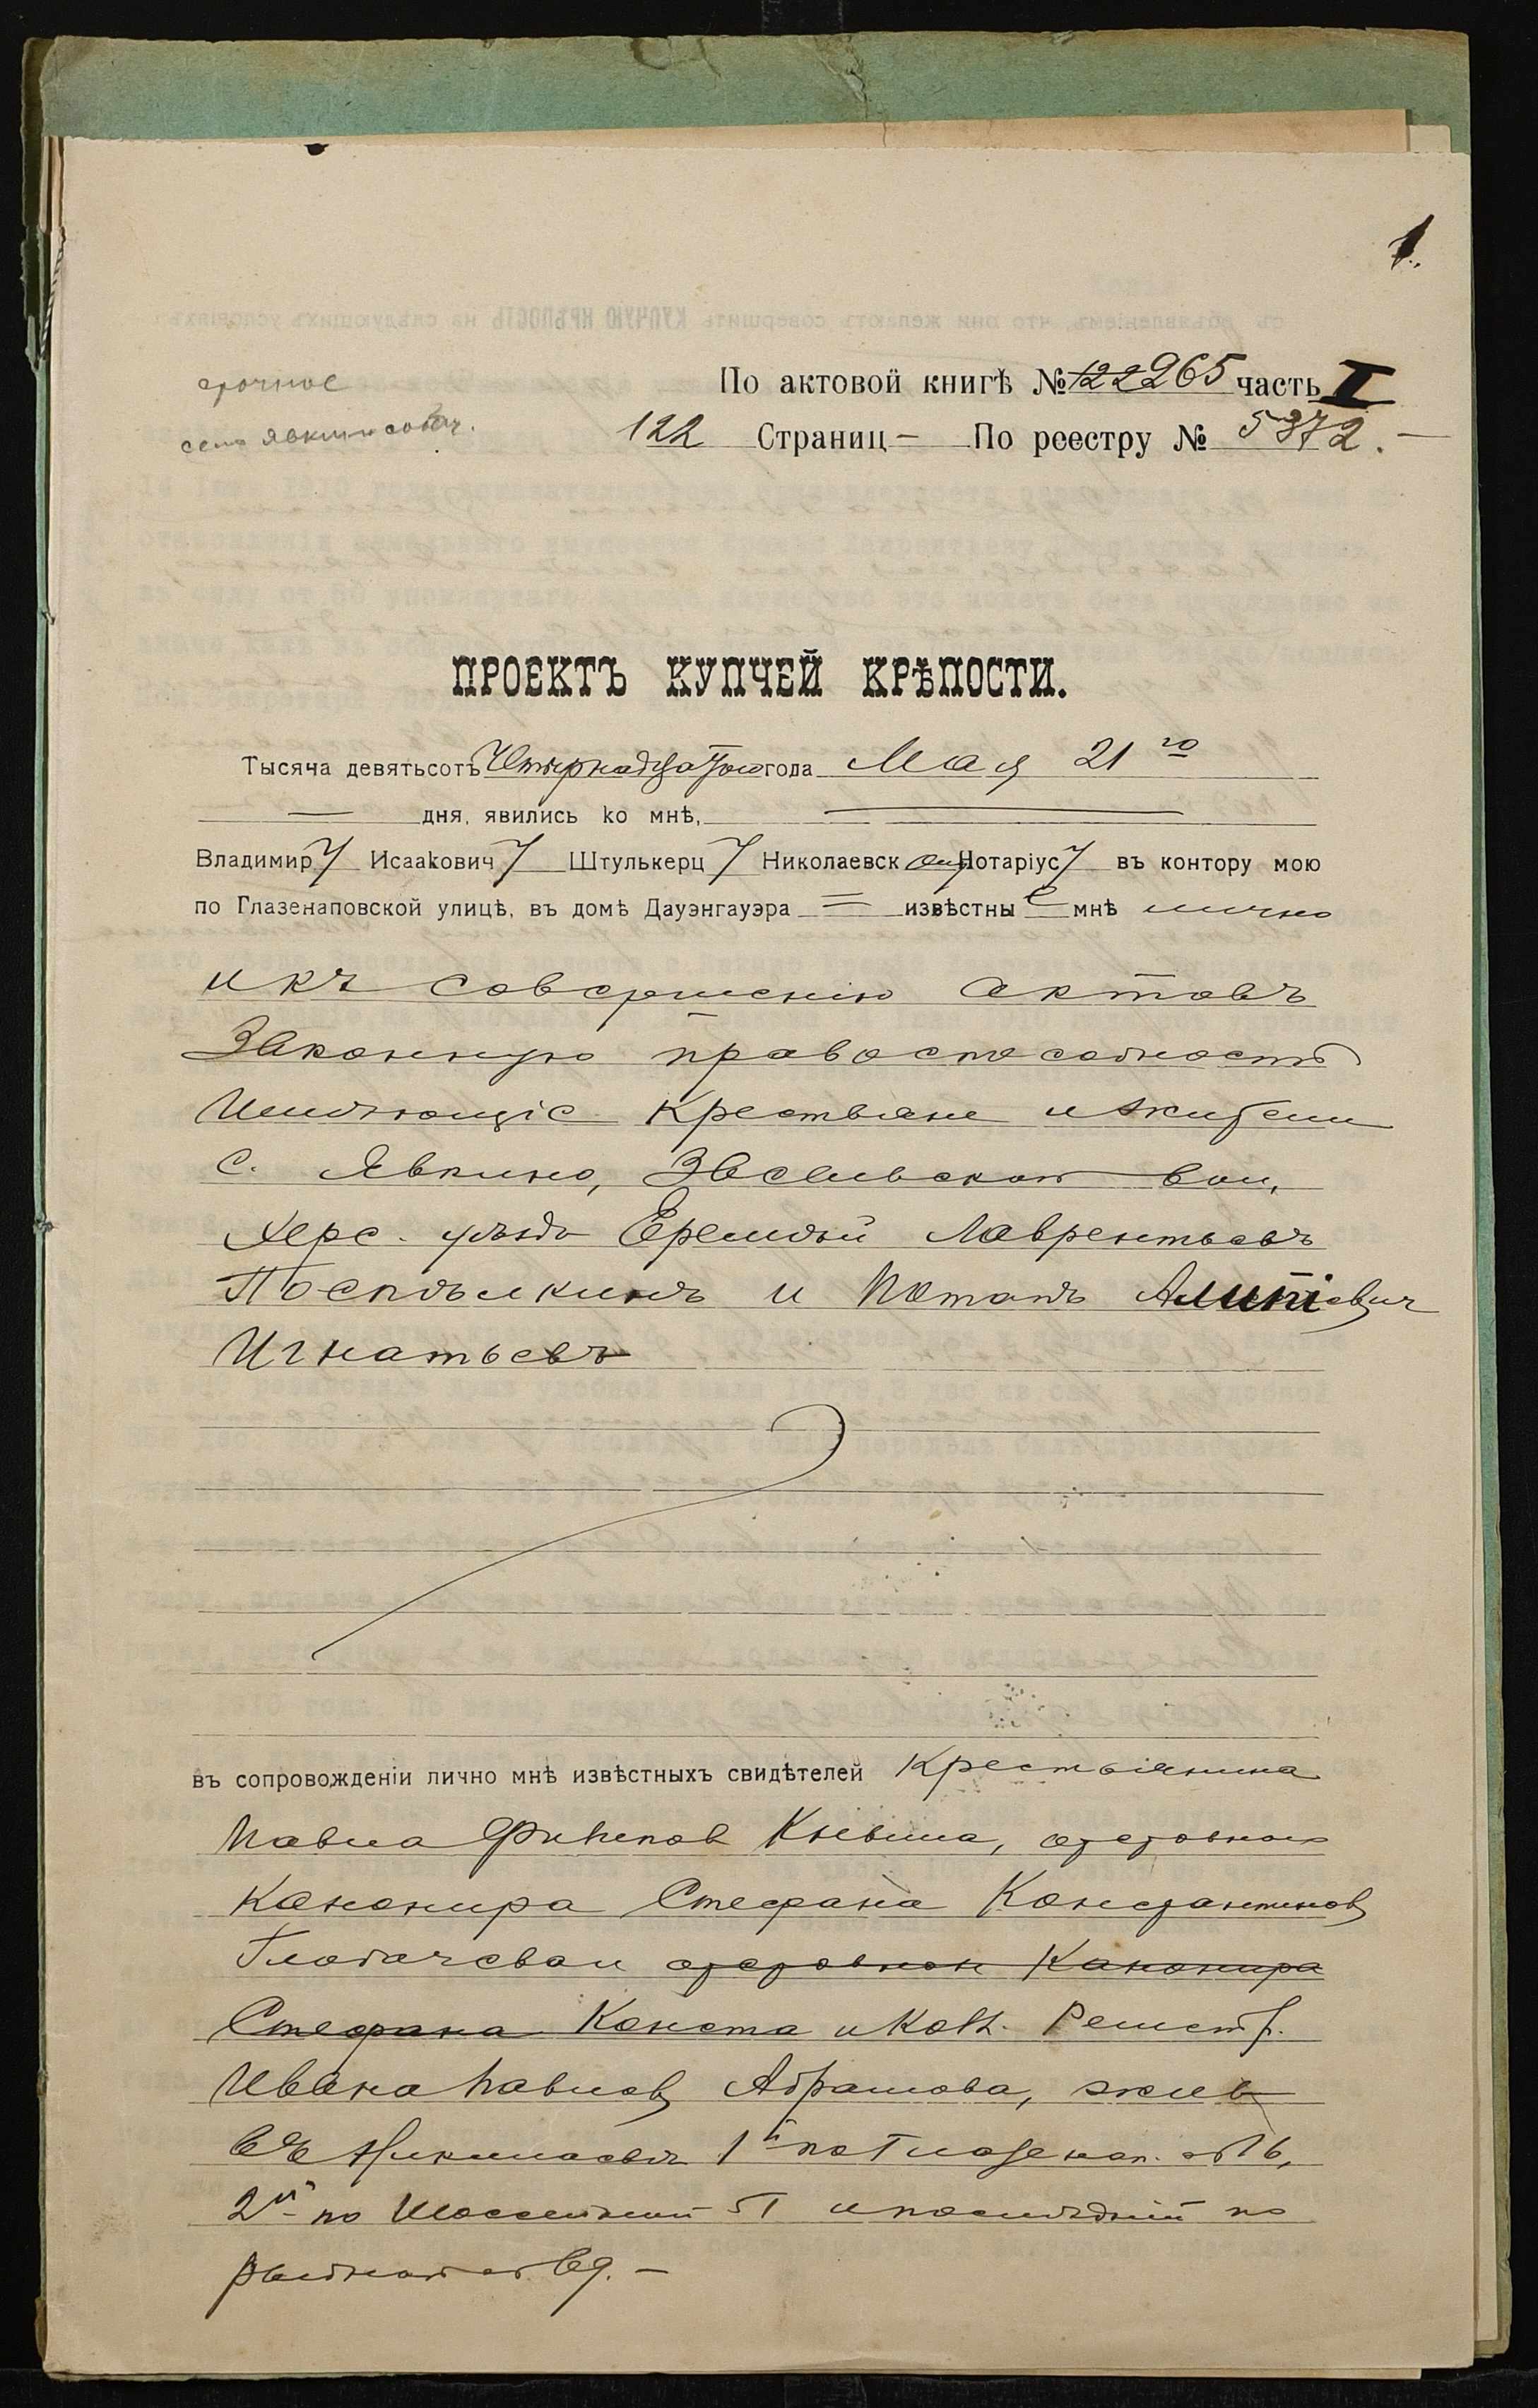 1.
срочное
село Явкино
По актовой книгѣ № 122 265 часть I
122 Страниц — По реестру № 5372. —
ПРОЕКТЪ КУПЧЕЙ КРѢПОСТИ.
Тысяча девятьсотъ Четырнадцатого года Мая 21 го
— дня, явились ко мнѣ, —
Владимиру Исааковичу Штулькерцу Николаевскому Нотаріусу въ контору мою
по Глазенаповской улицѣ, въ домѣ Дауэнгауэра = извѣстные мнѣ лично
и къ совершенію актовъ
Законную правоспособность
Имѣющіе Крестьяне и жители
с. Явкино, Засельской вол,
Херс. уѣзда Еремѣй Лаврентьевъ
Поспѣлкинъ и Потапъ Алипіевич
Игнатьевъ
въ сопровожденіи лично мнѣ извѣстныхъ свидѣтелей Крестьянина
Павла Князева, отставного
Канонира Стефана Константинов
Глобачева и отставного Канонира
Стефана Конста и Колл. Регистр.
Ивана Павлов Абрамова, жив
въ Николаевѣ 1й по Глазенап. 16,
2й по Шоссейной 51 и послѣдній по
Рыбной